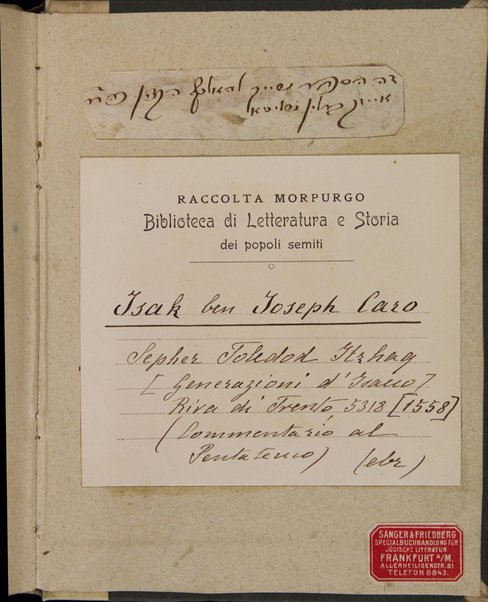 זה הספר שייך
RACCOLTA MORPURGO
Biblioteca di Letteratura e Storia
dei popoli semiti
Isak ben Joseph Caro
Sepher Toledod Itzhaq
[Generazioni d'Isacco]
Riva di Trento, 5318 [1558]
(Commentario al
Pentateuco) (ebr)
SÄNGER & FRIEDBERG
SPECIALBUCHHANDLUNG FÜR
JÜDISCHE LITERATUR
FRANKFURT A/M.
ALLERHEILIGENSTR. 81
TELEFON 8843.